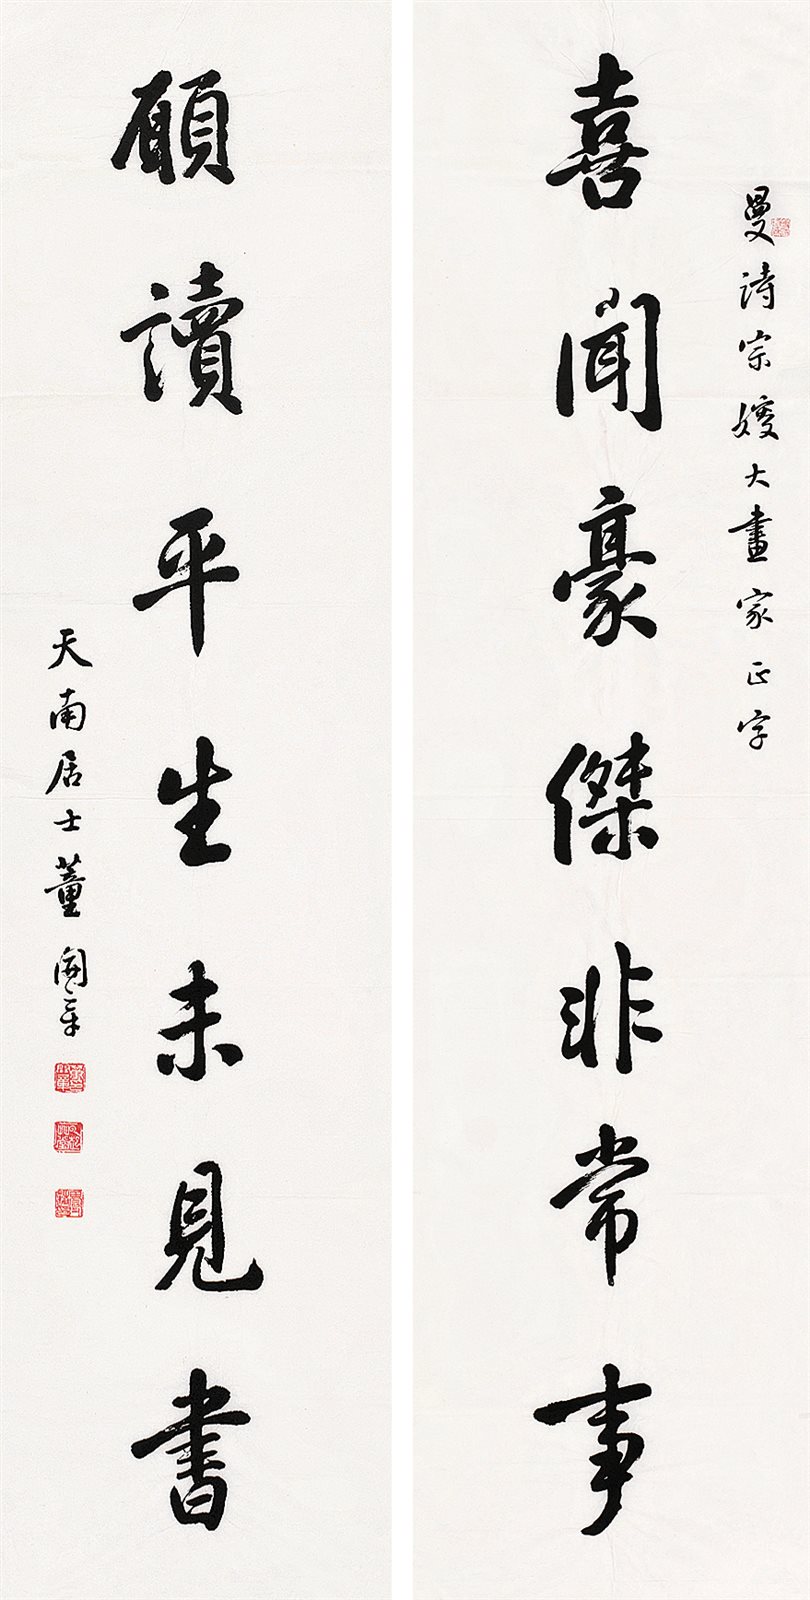 曼詩宗嫂大畫家正字
喜聞豪傑非常事
願讀平生未見書
天南居士董開章